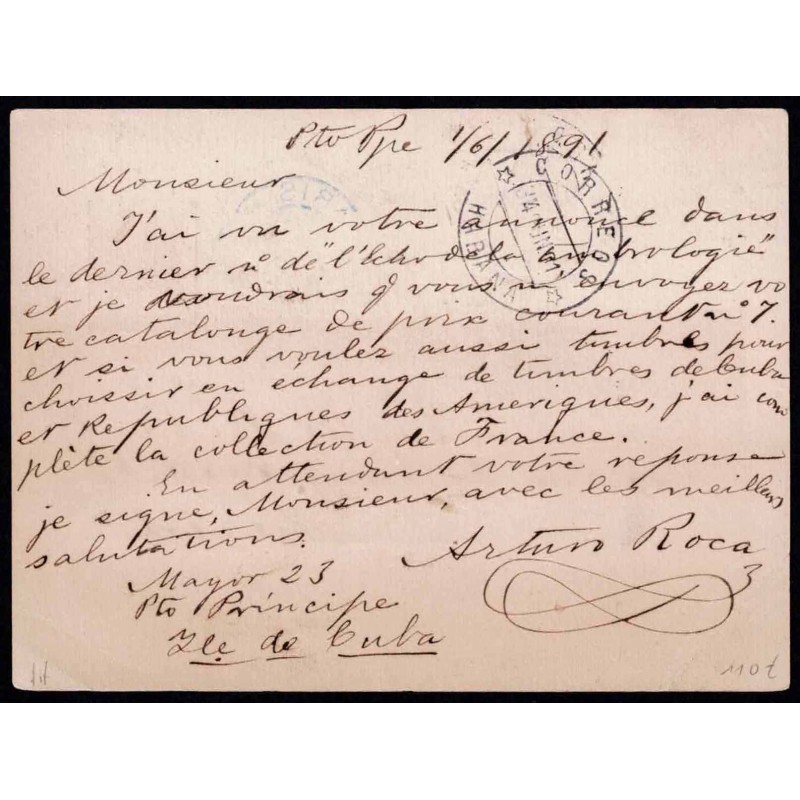 Pto Ppe 1/6/1891
Monsieur
J'ai vu votre annonce dans
le dernier nº de "l'Echo de la timbrologie"
et je voudrais q vous m envoyez vo
tre catalonge de prix courant nº 7.
et si vous voulez aussi timbres pour
choissir en échange de timbres de Cuba
et Republiques des Ameriques, j'ai com
plète la collection de France.
En attendant votre reponse
je signe, Monsieur, avec les meillurs
salutations.
Arturo Roca
Mayor 23
Pto Príncipe
Ile de Cuba
CORREOS
HABANA
110 t